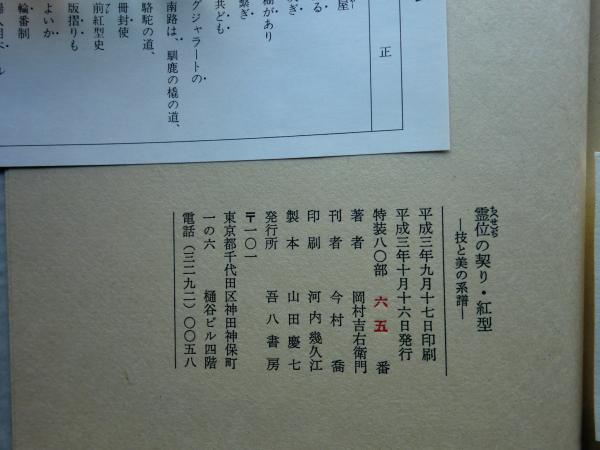 正
屋
る
ぎ
楡があり
繋ぎ
共ども
グジャラートの
南路は、馴鹿の橇の道、
駱駝の道、
冊封使
前紅型史
版摺りも
よいか
輪番制
霊位の契り・紅型
―技と美の系譜―
平成三年九月十七日印刷
平成三年十月十六日発行
特装八〇部 六五 番
著者 岡村吉右衛門
刊者 今村 喬
印刷 河内幾久江
製本 山田慶七
発行所 吾八書房
〒一〇一
東京都千代田区神田神保町
一の六 樋谷ビル四階
電話(三二九二)〇〇五八